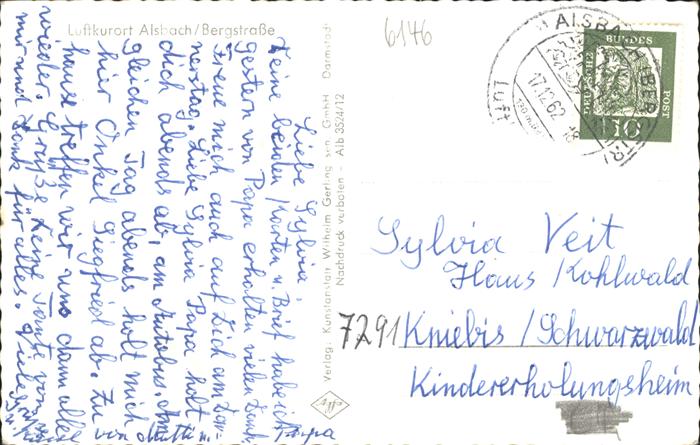 Luftkurort Alsbach/Bergstraße
Liebe Sylvia,
Deine beiden Karten u. Brief habe ich
gestern von Papa erhalten vielen Dank.
Freue mich auch auf Dich am Don-
nerstag. Liebe Sylvia Papa holt
dich abends ab, am Autobus. Am
gleichen Tag abends holt mich
hier Onkel Siegfried ab. Zu
hause treffen wir uns dann alle
wieder. Grüße Tante von
mir und Dank für alles. Viele
von Mutti u.
Papa
Verlag: Kunstanstalt Wilhelm Gerling sen. GmbH Darmstadt
Nachdruck verboten - Alb 3524/12
6146
ALSBACH
17.12.62
LUFT
DEUTSCHE
BUNDES
POST
10
Sylvia Veit
Haus Kohlwald
7291 Kniebis/Schwarzwald
Kindererholungsheim